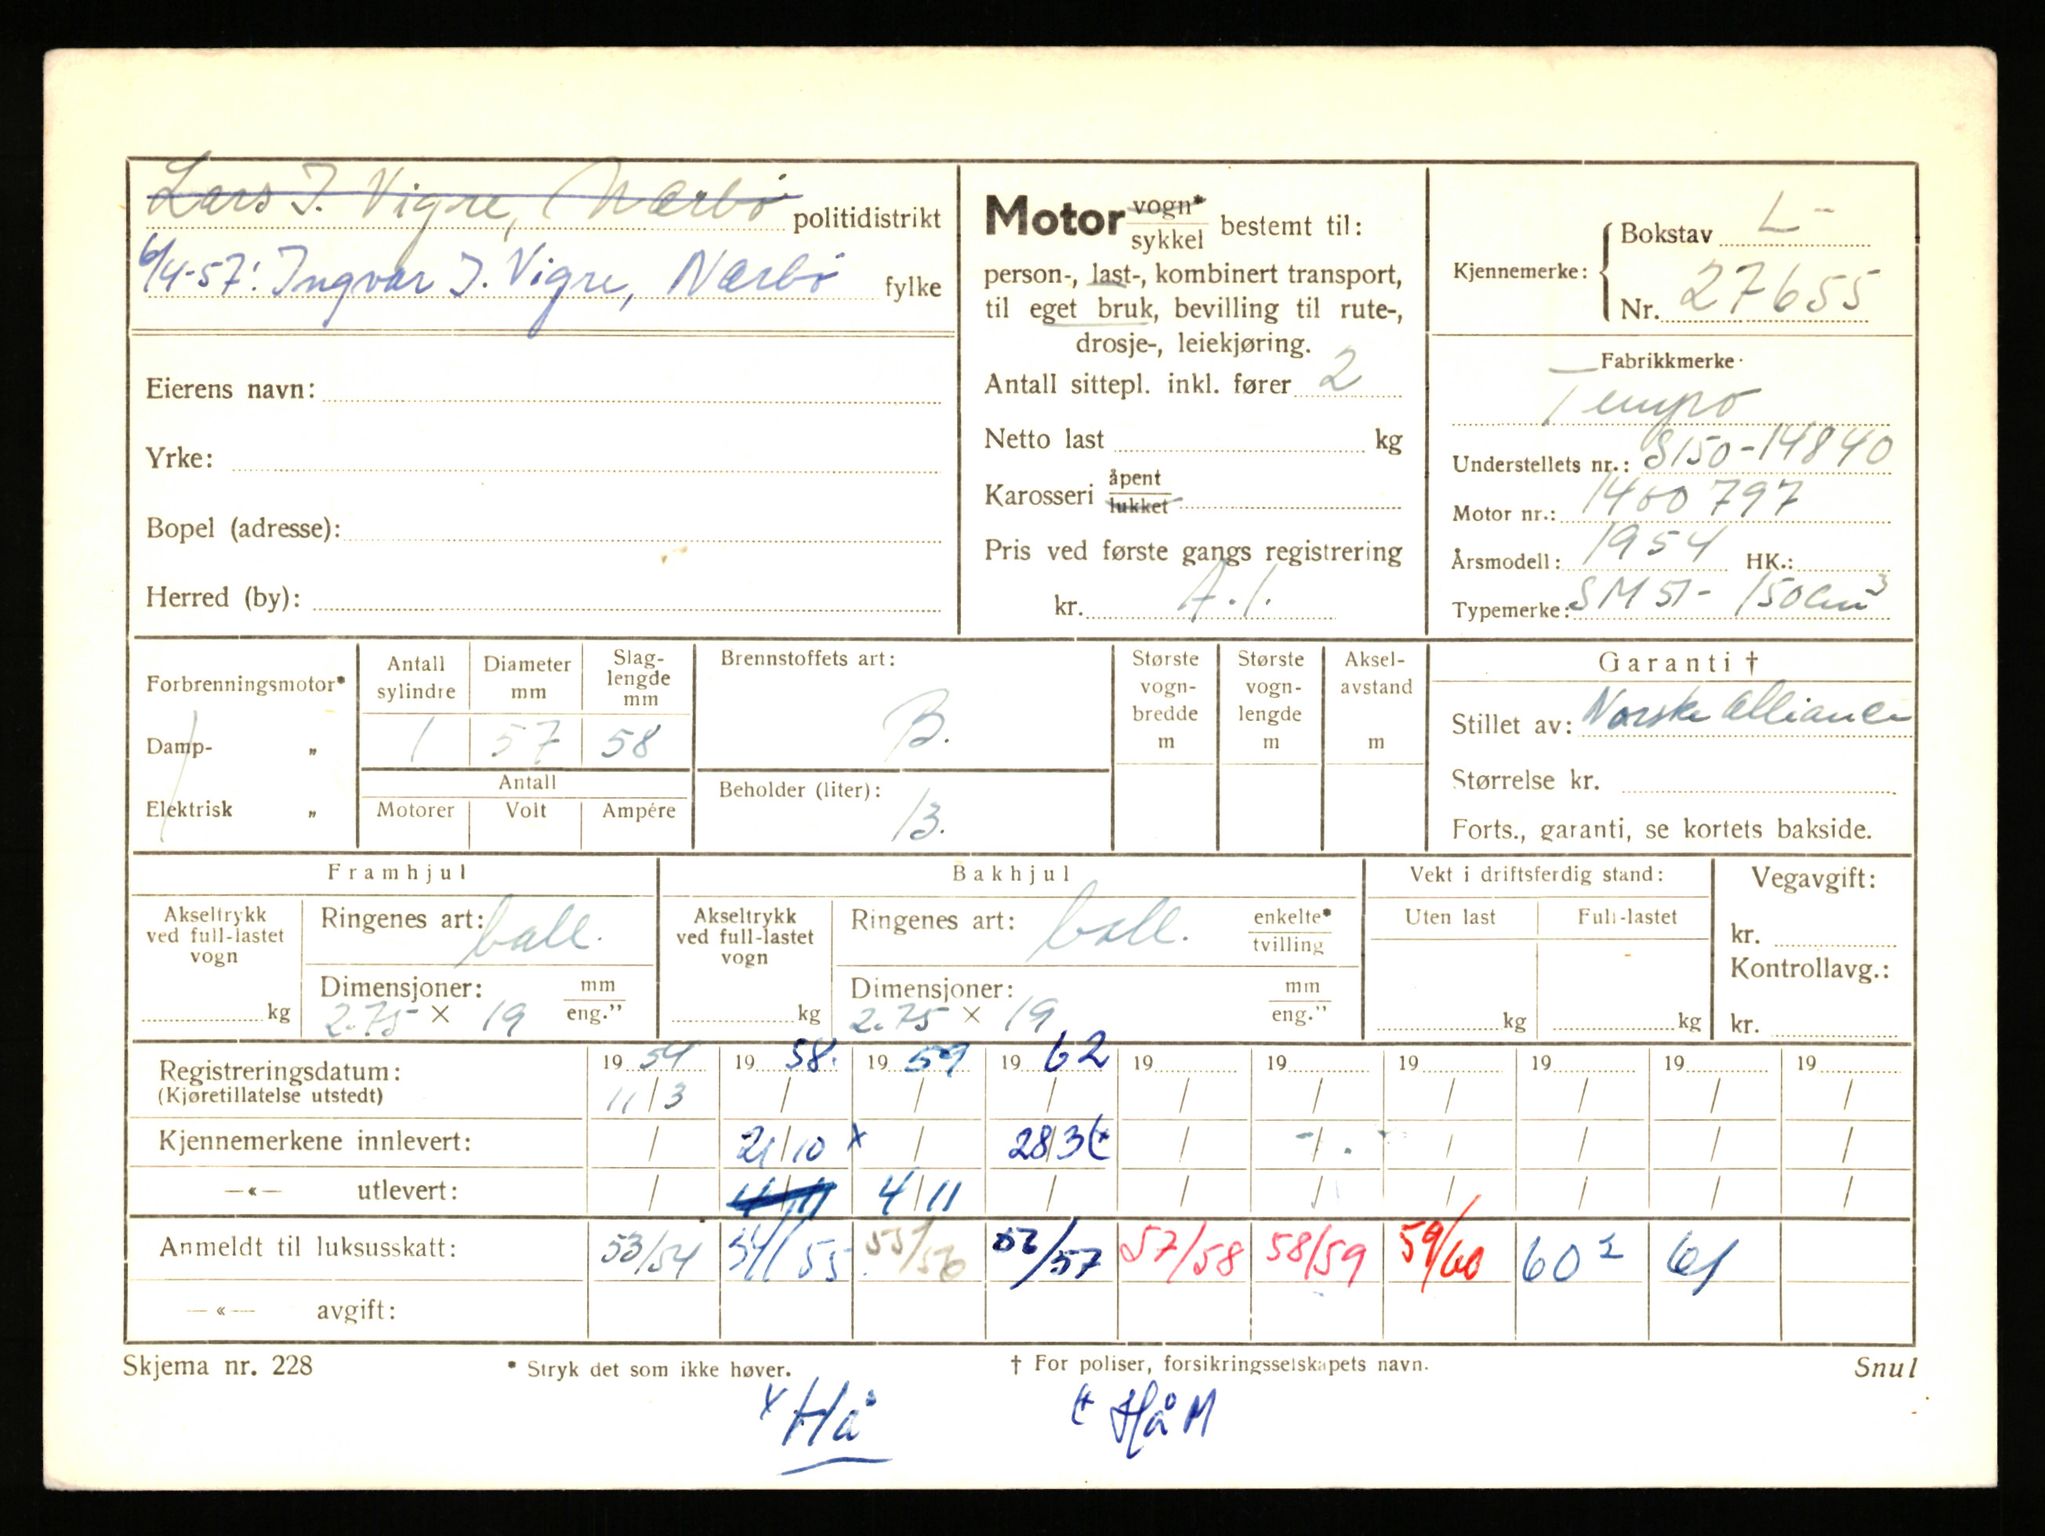 Lars I. Vigre, Nærbø politidistrikt
6/4-57: Ingvar I. Vigre, Nærbø fylke
Eierens navn:
Yrke:
Bopel (adresse):
Herred (by):
Motor vogn* sykkel bestemt til:
person-, last-, kombinert transport,
til eget bruk, bevilling til rute-,
drosje-, leiekjøring.
Antall sittepl. inkl. fører 2
Netto last kg
Karosseri åpent lukket
Pris ved første gangs registrering
kr. A.1.
Kjennemerke: Bokstav L-
Nr. 27655
Fabrikkmerke
Tempo
Understellets nr.: S150-14840
Motor nr.: 1400797
Årsmodell: 1954 HK.:
Typemerke: SM51- 150cm³
Forbrenningsmotor*
Damp- "
Elektrisk "
Antall sylindre
1
Diameter mm
57
Slag-lengde mm
58
Antall
Motorer Volt Ampére
Brennstoffets art:
B.
Beholder (liter):
13.
Største vogn-bredde m
Største vogn-lengde m
Aksel-avstand m
Garanti †
Stillet av: Norske Alliance
Størrelse kr.
Forts., garanti, se kortets bakside.
Framhjul
Akseltrykk ved full-lastet vogn
kg
Ringenes art: ball.
Dimensjoner: mm eng."
2.75 × 19
Bakhjul
Akseltrykk ved full-lastet vogn
kg
Ringenes art: ball. enkelte* tvilling
Dimensjoner: mm eng."
2.75 × 19
Vekt i driftsferdig stand:
Uten last Full-lastet
kg kg
Vegavgift:
kr.
Kontrollavg.:
kr.
Registreringsdatum: 19 54 19 58. 19 59 19 62 19 19 19 19 19 19
(Kjøretillatelse utstedt) 11/3 / / / / / / / / /
Kjennemerkene innlevert: / 21/10 x / 28/3 / / / / / /
—«— utlevert: / 4/11 4/11 / / / / / / /
Anmeldt til luksusskatt: 53/54 54/55 55/56 56/57 57/58 58/59 59/60 60² 61
—«— avgift:
Skjema nr. 228 * Stryk det som ikke høver. † For poliser, forsikringsselskapets navn. Snul
x Hå
Hå M